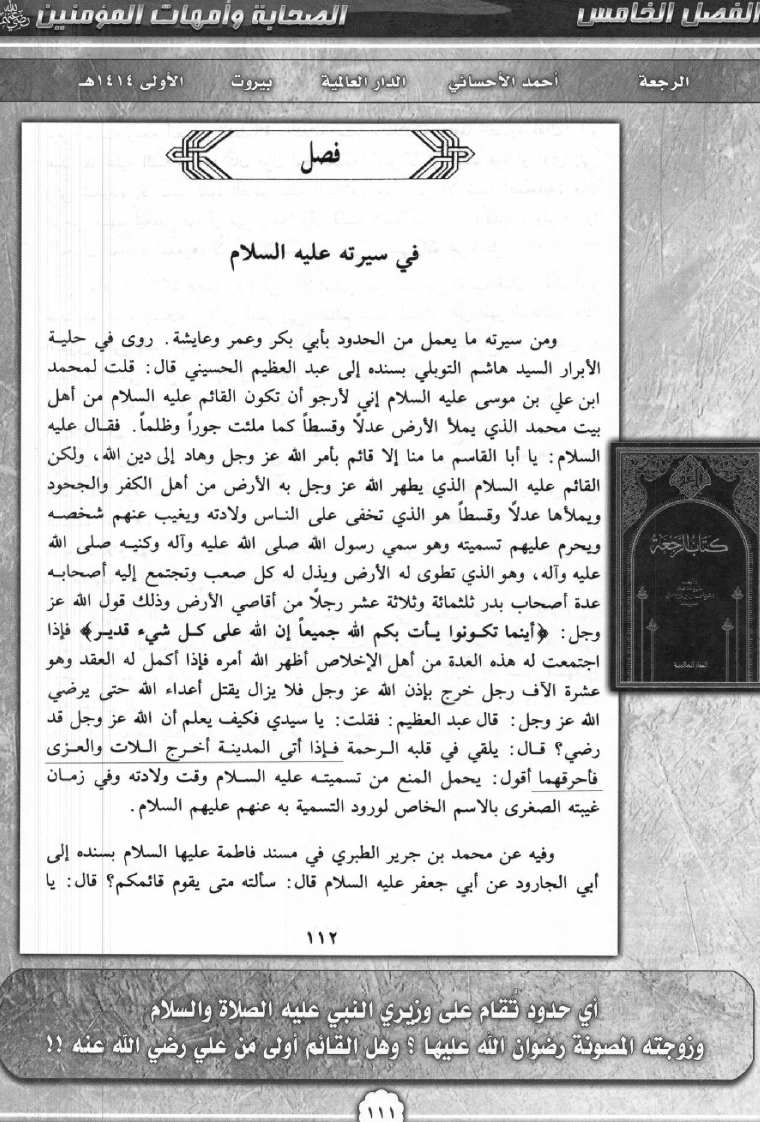 الفصل الخامس
الصحابة وأمهات المؤمنين
الرجعة أحمد الأحسائي الدار العالمية بيروت الأولى ١٤١٤هـ
فصل
في سيرته عليه السلام
ومن سيرته ما يعمل من الحدود بأبي بكر وعمر وعايشة. روى في حلية
الأبرار السيد هاشم التوبلي بسنده إلى عبد العظيم الحسيني قال: قلت لمحمد
ابن علي بن موسى عليه السلام إني لأرجو أن تكون القائم عليه السلام من أهل
بيت محمد الذي يملأ الأرض عدلًا وقسطاً كما ملئت جوراً وظلماً. فقال عليه
السلام: يا أبا القاسم ما منا إلا قائم بأمر الله عز وجل وهاد إلى دين الله، ولكن
القائم عليه السلام الذي يطهر الله عز وجل به الأرض من أهل الكفر والجحود
ويملأها عدلًا وقسطاً هو الذي تخفى على الناس ولادته ويغيب عنهم شخصه
ويحرم عليهم تسميته وهو سمي رسول الله صلى الله عليه وآله وكنيه صلى الله
عليه وآله، وهو الذي تطوى له الأرض ويذل له كل صعب وتجتمع إليه أصحابه
عدة أصحاب بدر ثلثمائة وثلاثة عشر رجلًا من أقاصي الأرض وذلك قول الله عز
وجل: ﴿أينما تكونوا يأت بكم الله جميعاً إن الله على كل شيء قدير﴾ فإذا
اجتمعت له هذه العدة من أهل الإخلاص أظهر الله أمره فإذا أكمل له العقد وهو
عشرة الآف رجل خرج بإذن الله عز وجل فلا يزال يقتل أعداء الله حتى يرضي
الله عز وجل: قال عبد العظيم: فقلت: يا سيدي فكيف يعلم أن الله عز وجل قد
رضي؟ قال: يلقي في قلبه الرحمة فإذا أتى المدينة أخرج اللات والعزى
فأحرقهما أقول: يحمل المنع من تسميته عليه السلام وقت ولادته وفي زمان
غيبته الصغرى بالاسم الخاص لورود التسمية به عنهم عليهم السلام.
وفيه عن محمد بن جرير الطبري في مسند فاطمة عليها السلام بسنده إلى
أبي الجارود عن أبي جعفر عليه السلام قال: سألته متى يقوم قائمكم؟ قال: يا
١١٢
كتاب الرجعة
الدار العالمية
أي حدود تُقام على وزيري النبي عليه الصلاة والسلام
وزوجته المصونة رضوان الله عليها ؟ وهل القائم أولى من علي رضي الله عنه !!
١١١